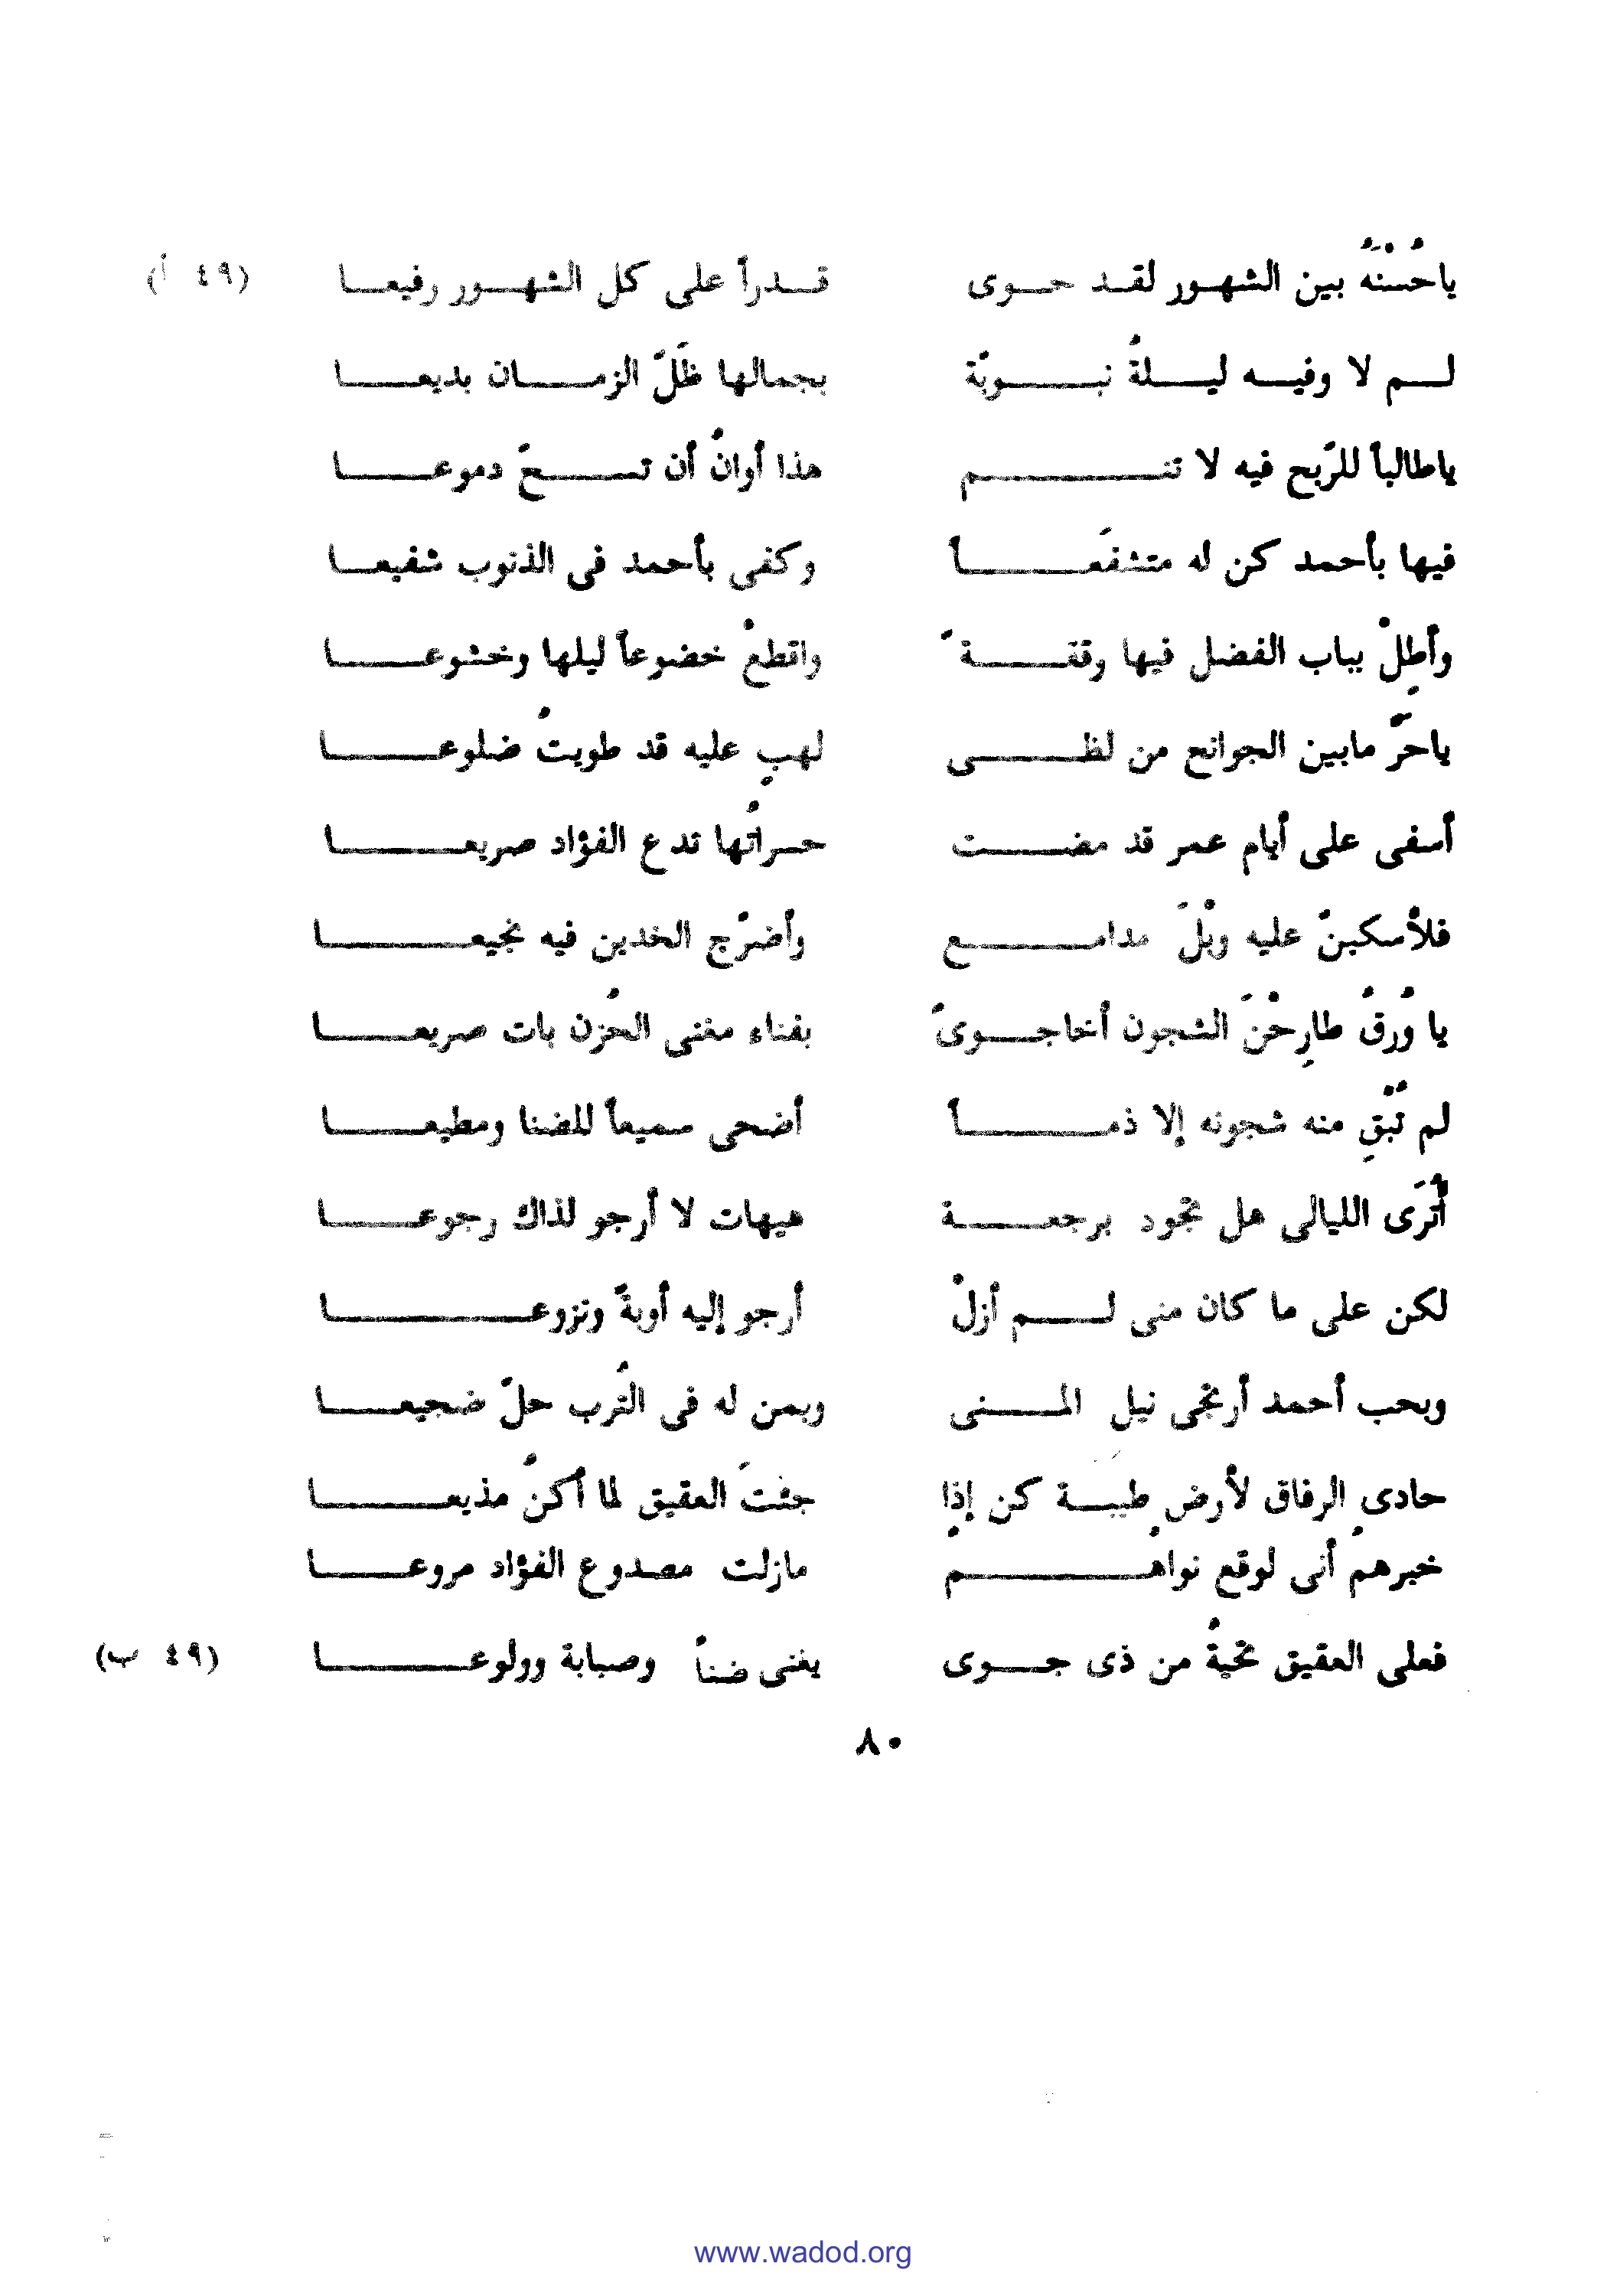 ياحُسْنَهُ بين الشهور لقد حوى قدراً على كل الشهور رفيعا (٤٩ أ)
لم لا وفيه ليلةُ نبويّة بجمالها ظَلّ الزمان بديعا
ياطالباً للرّبح فيه لا تنم هذا أوانُ أن تسحّ دموعا
فيها بأحمد كن له متشفّعاً وكفى بأحمد فى الذنوب شفيعا
وأطِلْ بباب الفضل فيها وقفةً واقطعْ خضوعاً ليلها وخشوعا
ياحرّ مابين الجوانح من لظى لهبٍ عليه قد طويتُ ضلوعا
أسفى على أيام عمر قد مضت حسراتُها تدع الفؤاد صريعا
فلأسكبنّ عليه وبْلَ مدامع وأضرّج الخدين فيه نجيعا
يا وُرقُ طارِحْنَ الشجون أخاجوىً بفناء مغنى الحُزن بات صريعا
لم تُبْقِ منه شجونه إلا ذماً أضحى سميعاً للضنا ومطيعا
أتُرَى الليالى هل تجود برجعة هيهات لا أرجو لذاك رجوعا
لكن على ما كان منى لم أزلْ أرجو إليه أوبةً ونزوعا
وبحب أحمد أرتجى نيل المنى وبمن له فى التُرب حلّ ضجيعا
حادى الرفاق لأرض طيبة كن إذا جئتَ العقيق لما أكنُّ مذيعا
خبرهمُ أنى لوقع نواهمُ مازلت مصدوع الفؤاد مروعا
فعلى العقيق تحيةُ من ذى جوى يغنى ضناً وصبابة وولوعا (٤٩ ب)
٨٠
www.wadod.org